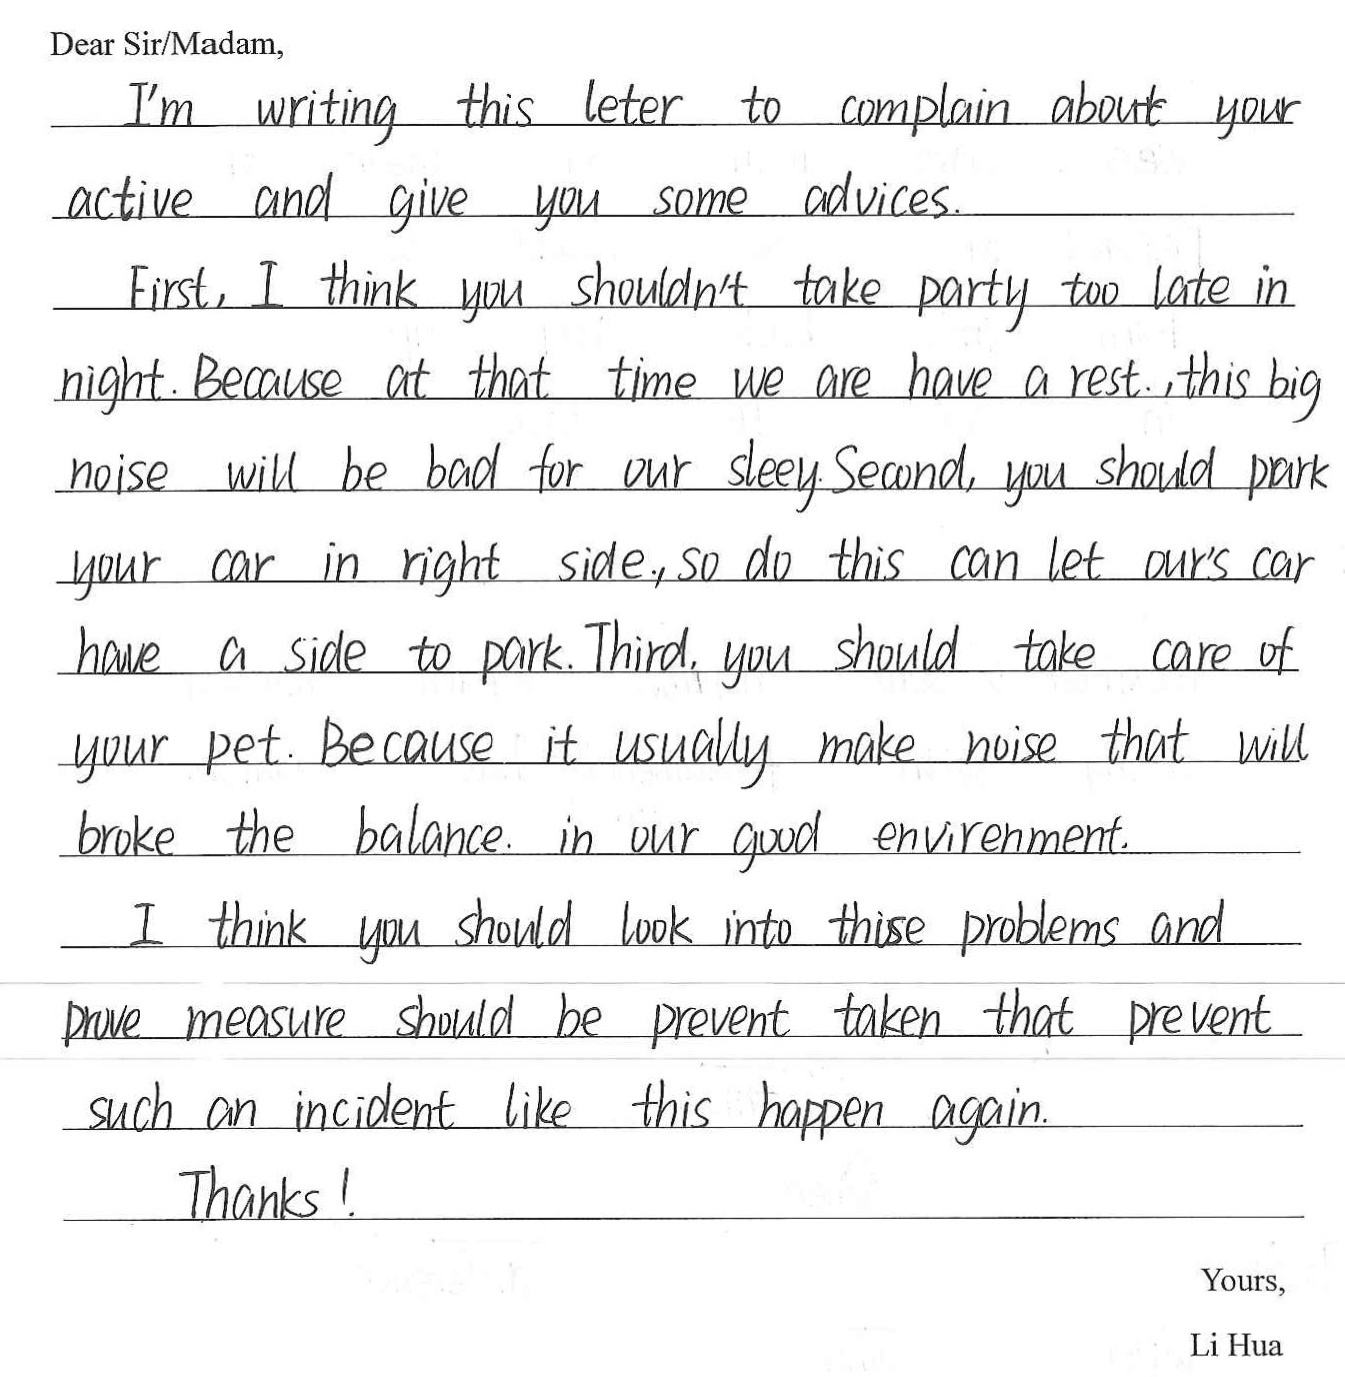 Dear Sir/Madam,
I'm writing this leter to complain about your
active and give you some advices.
First, I think you shouldn't take party too late in
night. Because at that time we are have a rest., this big
noise will be bad for our sleey. Second, you should park
your car in right side., so do this can let our's car
have a side to park. Third, you should take care of
your pet. Because it usually make noise that will
broke the balance. in our good envirenment.
I think you should look into thise problems and
prove measure should be prevent taken that prevent
such an incident like this happen again.
Thanks!
Yours,
Li Hua